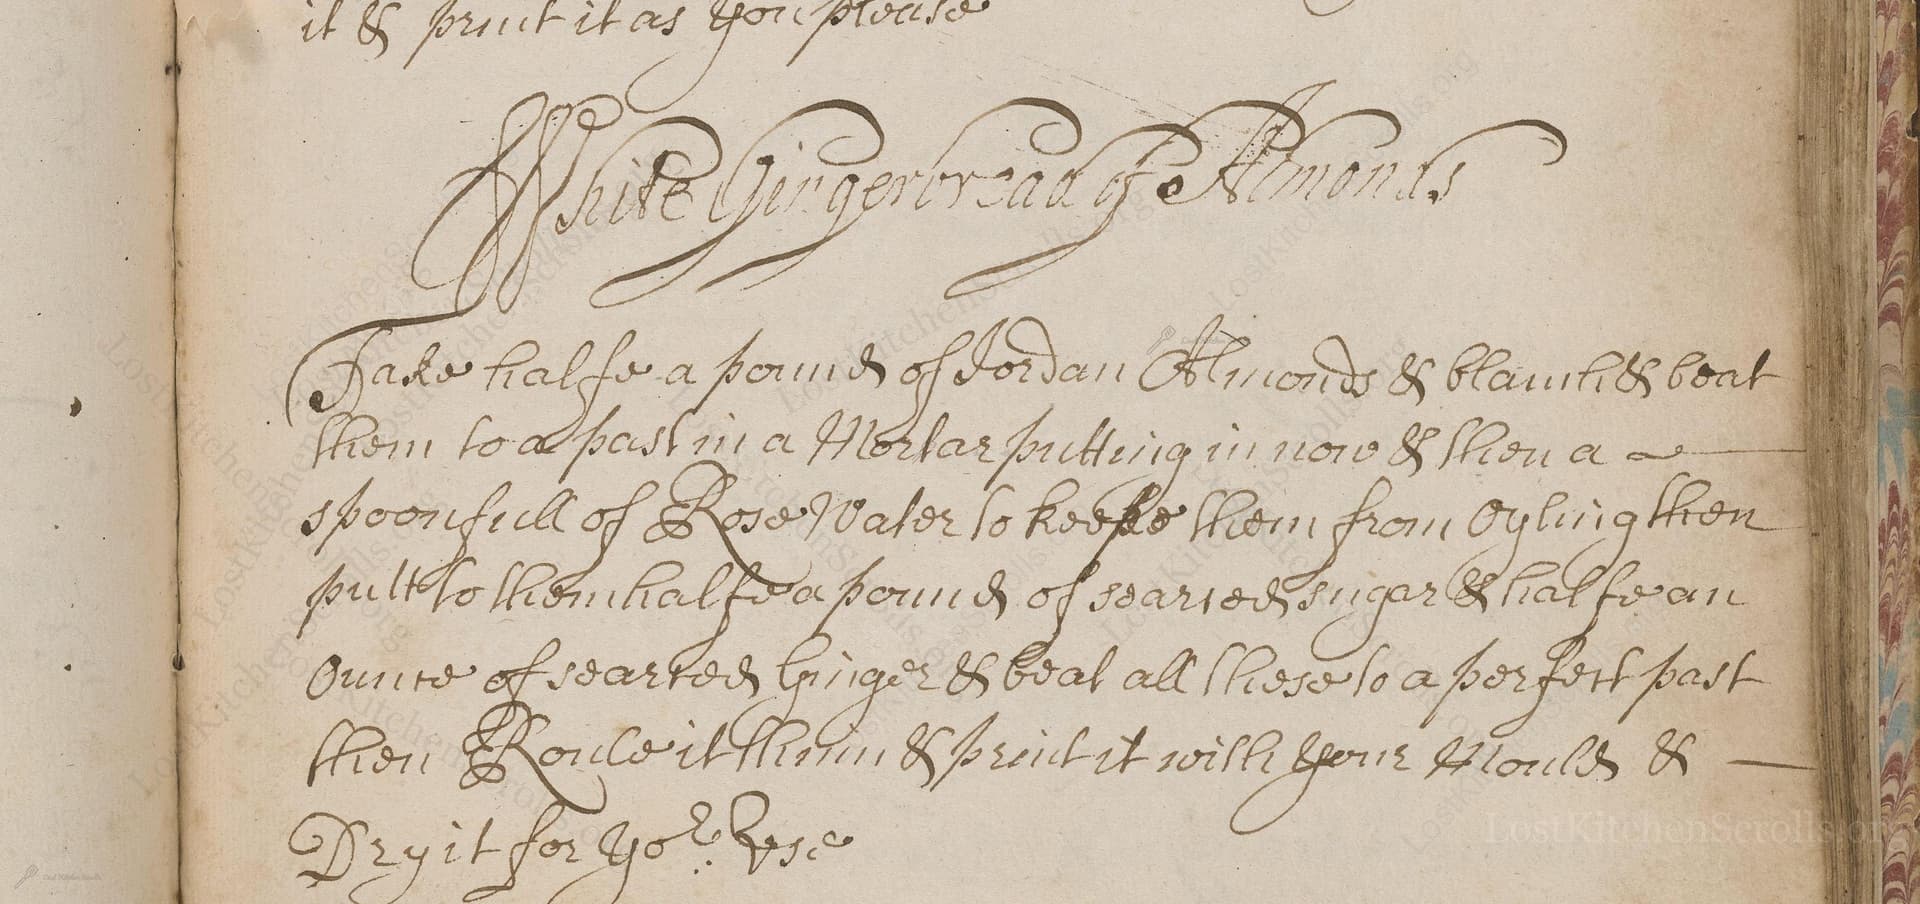 it & print it as you please
White Gingerbread of Almonds
Take halfe a pound of Jordan Almonds & blanch & beat
them to a past in a Mortar putting in now & then a
spoonfull of Rose Water to keepe them from Oyling then
putt to them halfe a pound of searced sugar & halfe an
Ounce of searced Ginger & beat all these to a perfect past
then Roule it thinn & print it with your Mould &
Dry it for yor. Vse
LostKitchenScrolls.org